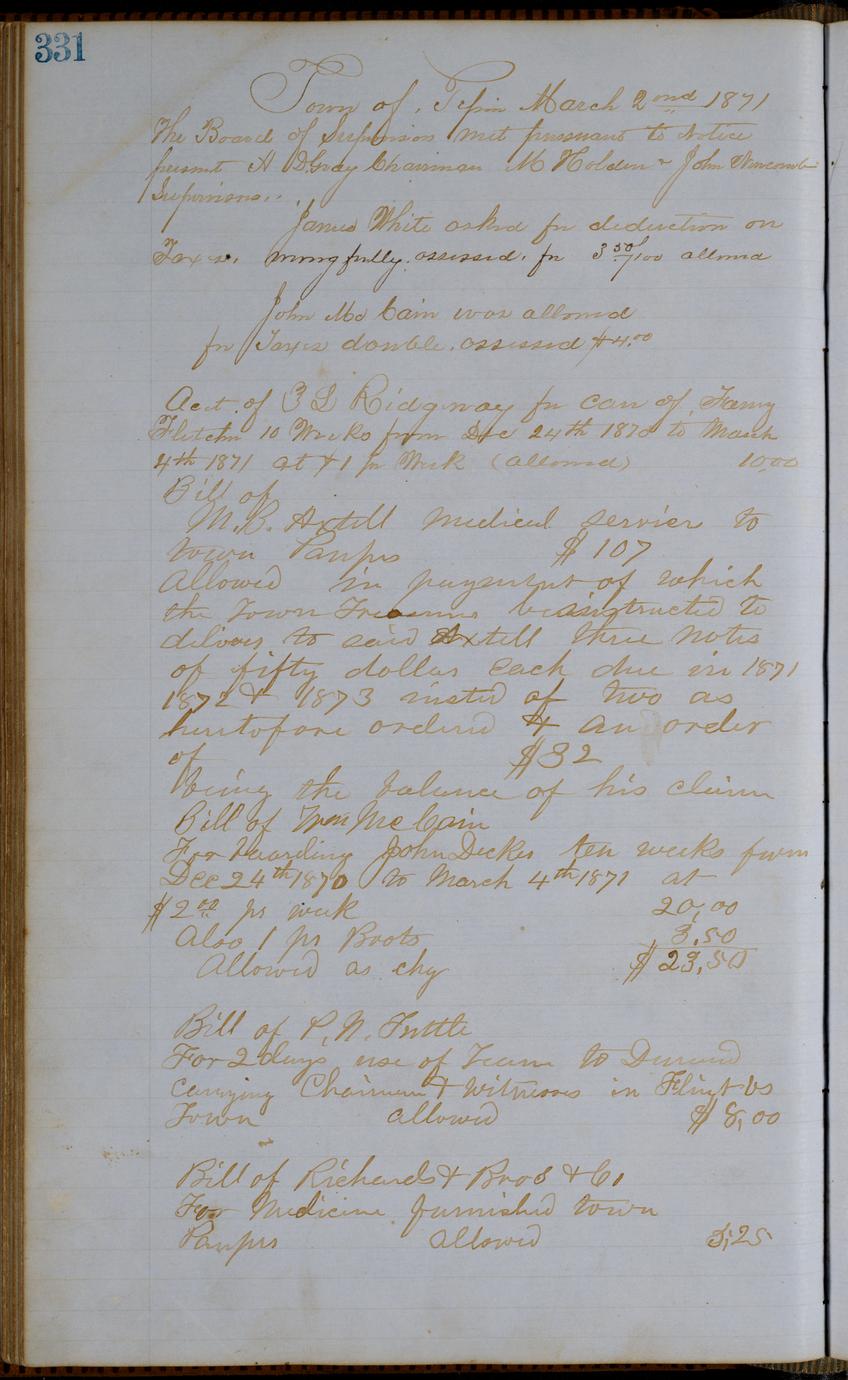 331
Town of Pepin March 2nd 1871
The Board of Supervisors met pursuant to Notice
present A D Gray Chairman M Holden & John Newcomb
Supervisors.
James White asked for deduction on
Taxes. wrongfully assessed. for 3 50/100 allowed
John Mc Cain was allowed
for Taxes double assessed $4.00
Acct. of Ridgway for care of Fanny
Fletcher 10 Weeks from Dec 24th 1870 to March
4th 1871 at $1 pr Week (allowed) 10.00
Bill of
M. B. Axtell medical services to
town Pauprs $107
Allowed in payment of which
the Town Treasurer be instructed to
deliver to said Axtell three notes
of fifty dollars each due in 1871
1872 & 1873 insted of two as
heretofore ordered & an order
of $32
being the balance of his claim
Bill of Wm McCain
For boarding John Decker ten weeks from
Dec 24th 1870 to March 4th 1871 at
$2.00 pr week 20,00
Also 1 pr Boots 3.50
Allowed as chg $23,50
Bill of P. N. Tuttle
For 2 days use of Team to Durand
carrying Chairman & witnesses in Flint vs
Town allowed $8,00
Bill of Richards & Bros & Co
For Medicine furnished town
Pauprs allowed 5,25